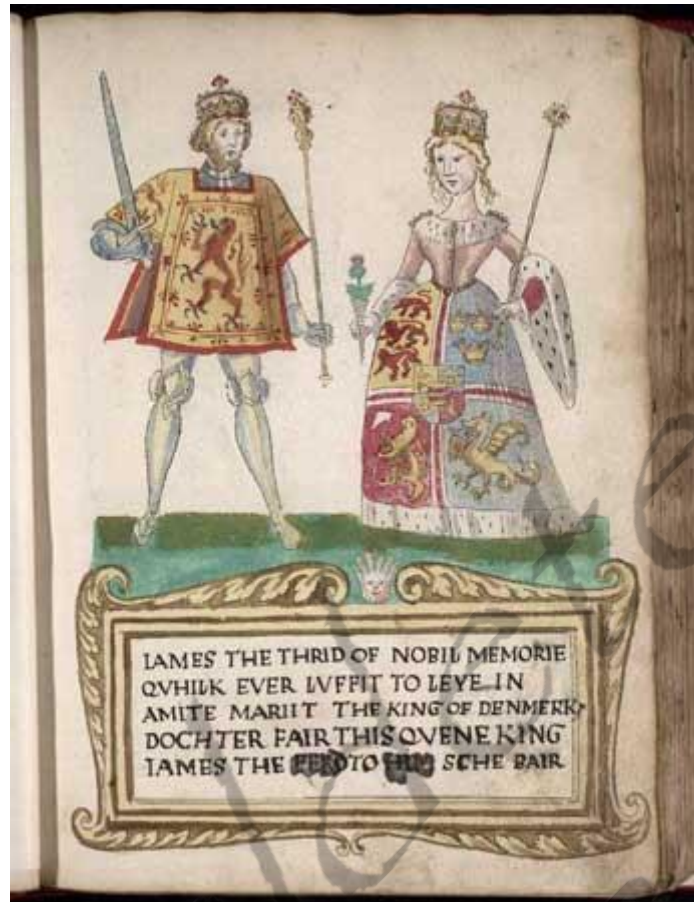 IAMES THE THRID OF NOBIL MEMORIE
QVHILK EVER LVFFIT TO LEVE IN
AMITE MARIIT THE KING OF DENMERK,
DOCHTER FAIR THIS QVENE KING
IAMES THE TO SCHE BAIR